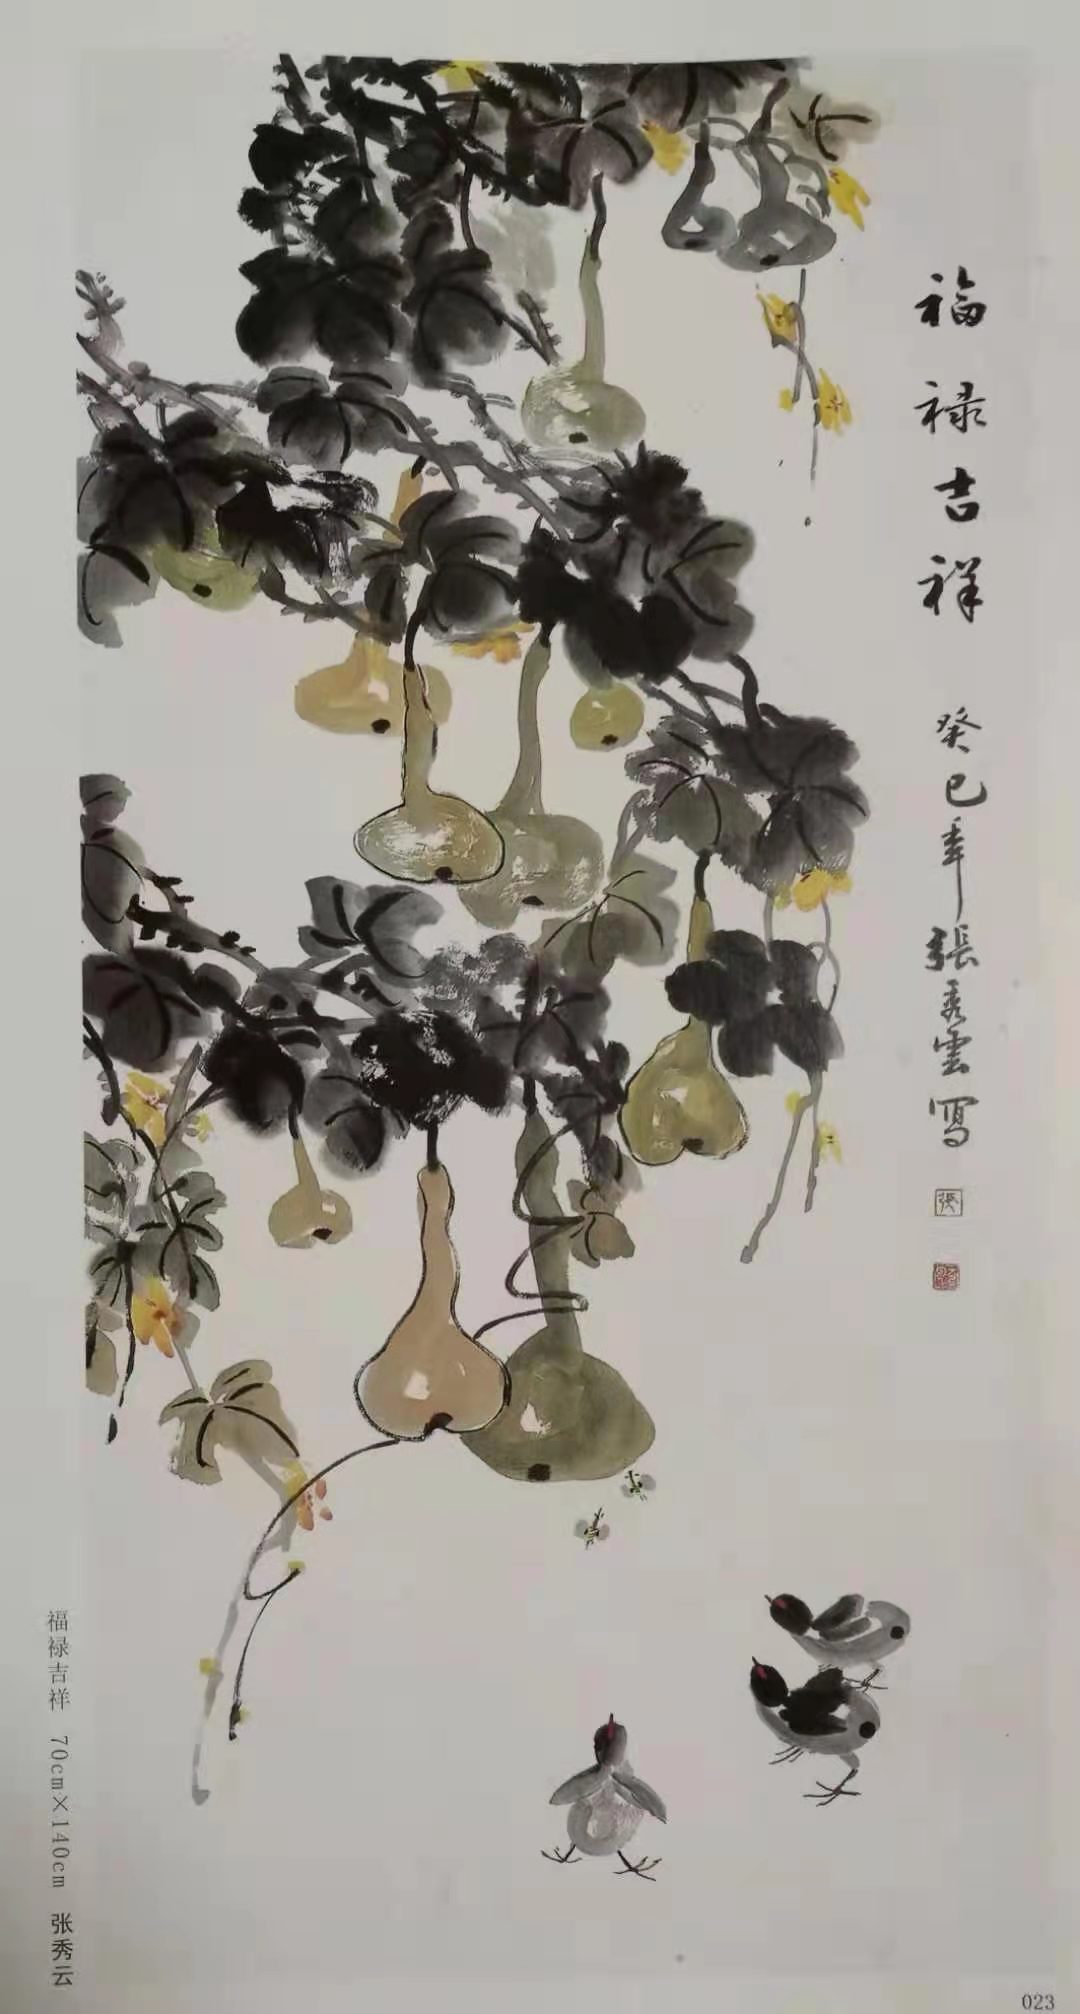 福禄吉祥
癸巳年張秀雲寫
張
福禄吉祥 70cm×140cm 张秀云
023